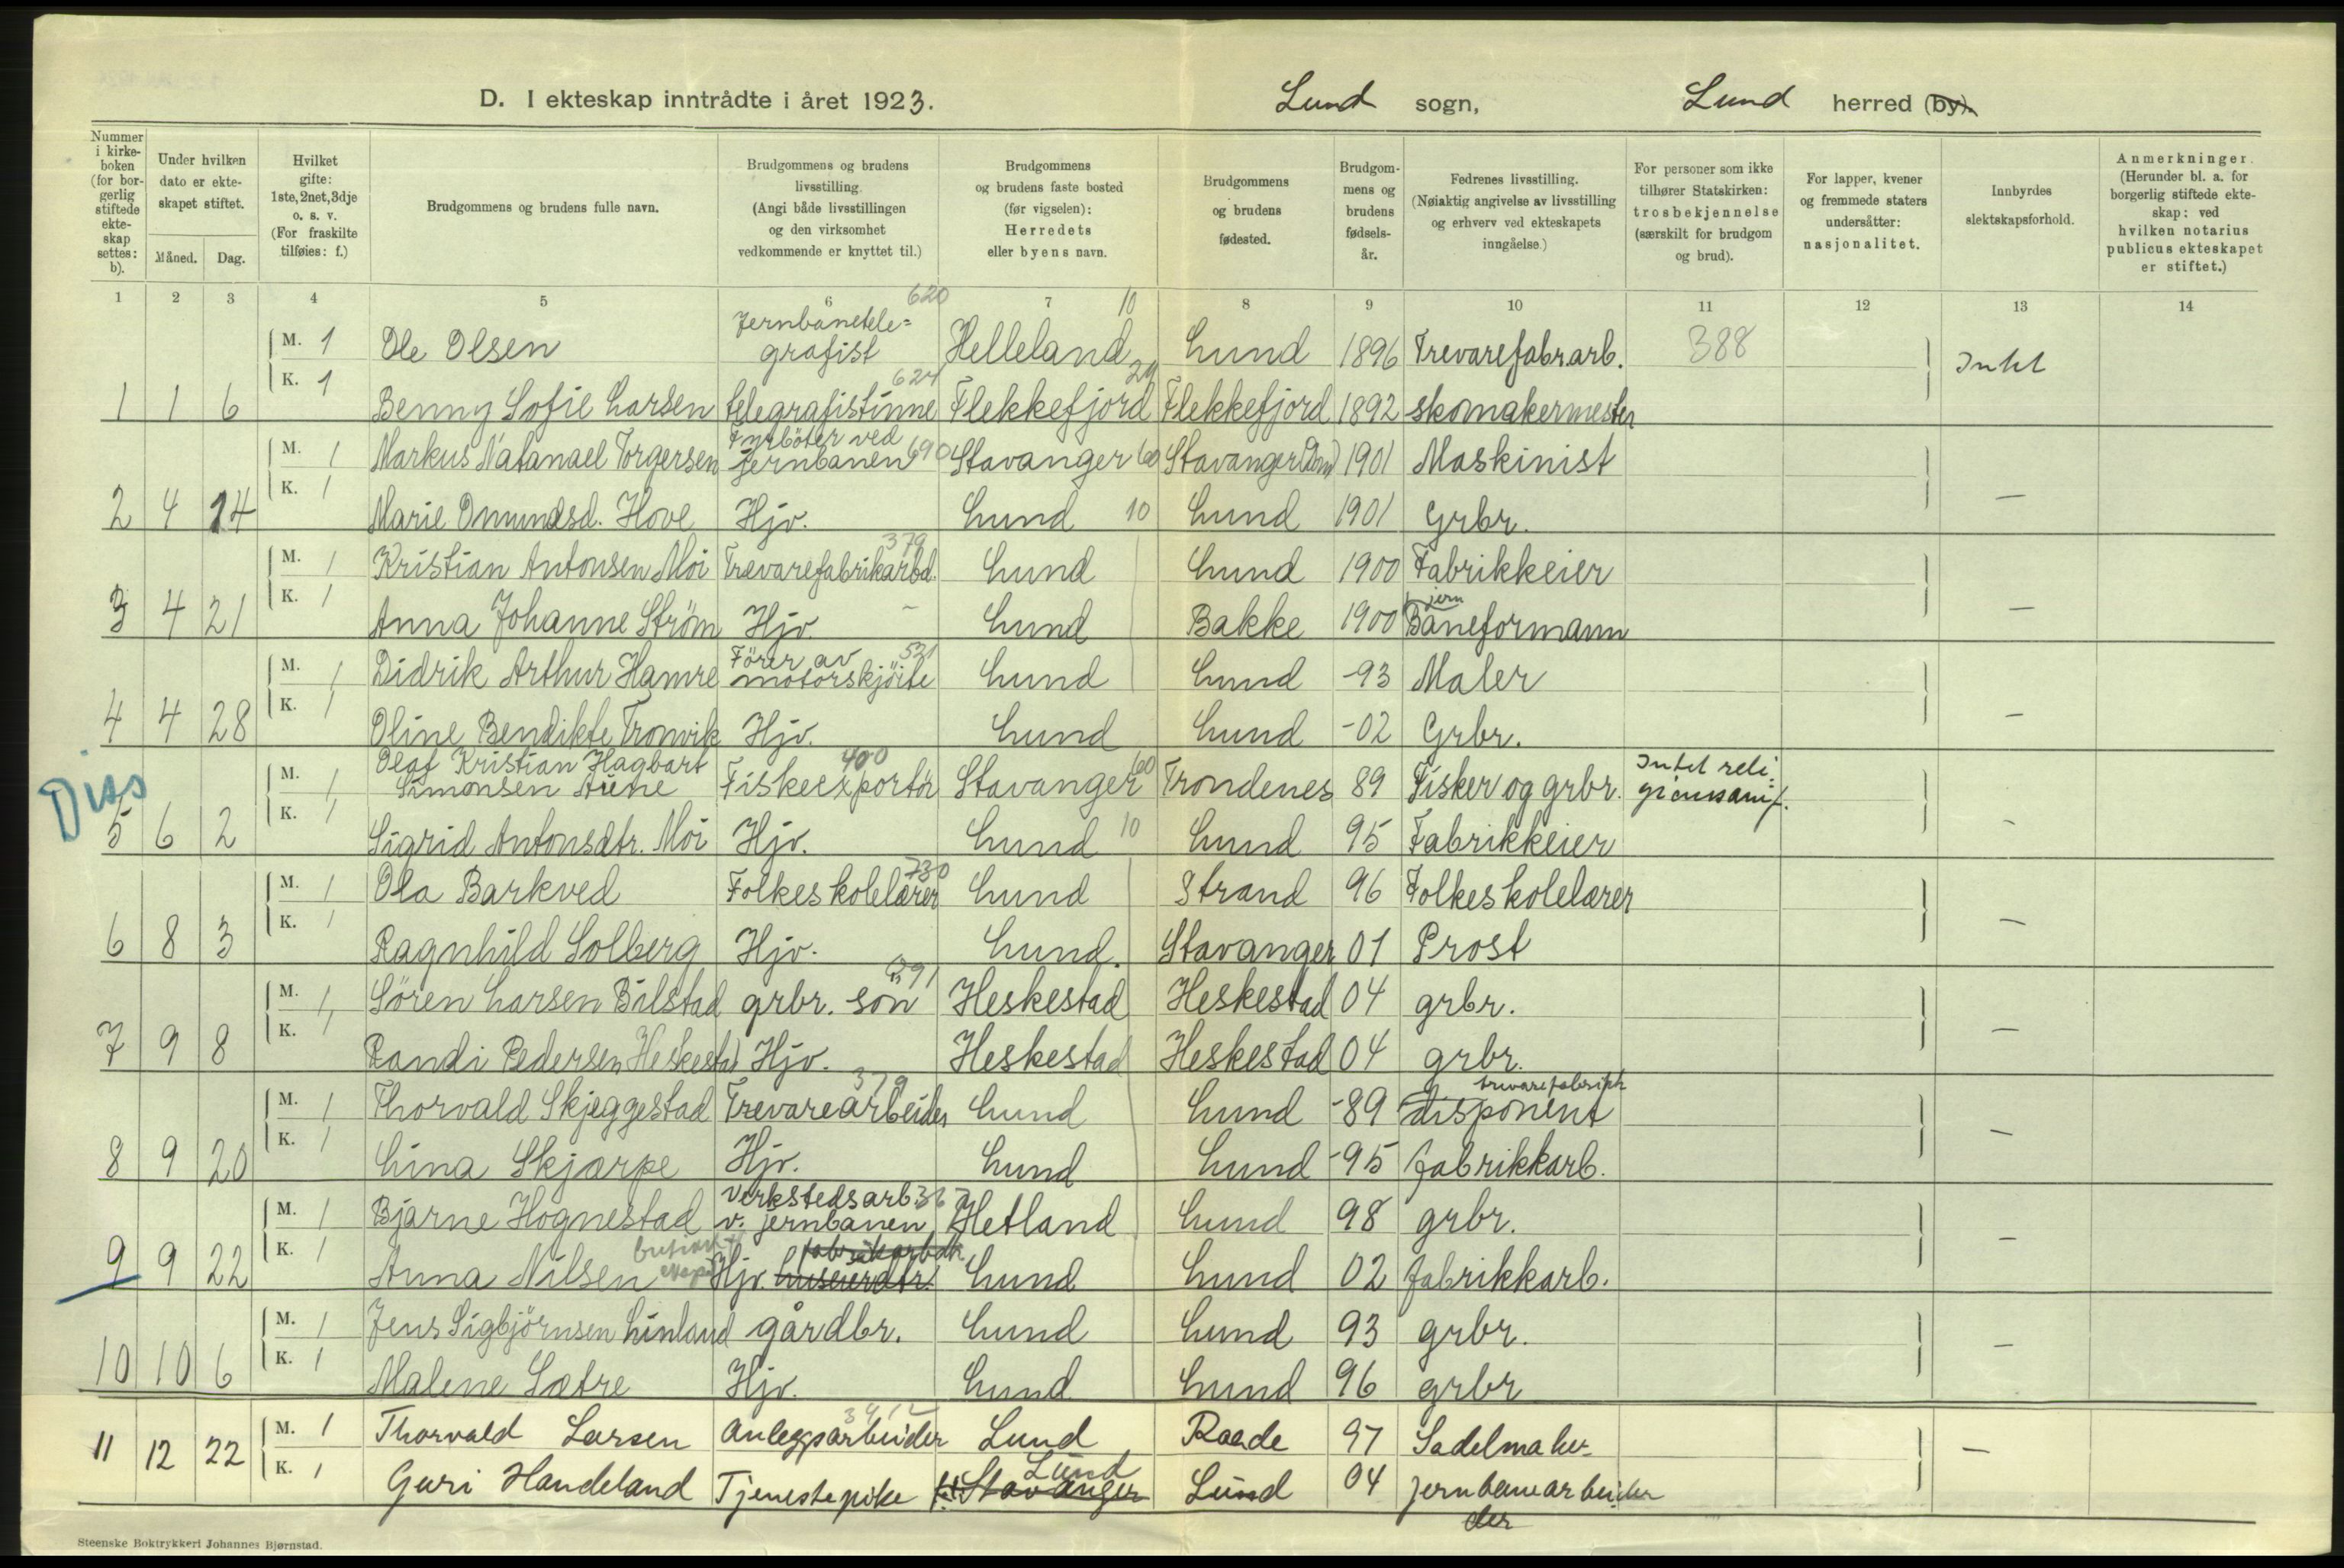 D. I ekteskap inntrådte i året 1923. Lund sogn, Lund herred (by).
Nummer i kirke-boken (for bor-gerlig stiftede ekte-skap settes: b).
Under hvilken dato er ekte-skapet stiftet.
Måned. Dag.
Hvilket gifte: 1ste, 2net, 3dje o. s. v. (For fraskilte tilføies: f.)
Brudgommens og brudens fulle navn.
Brudgommens og brudens livsstilling. (Angi både livsstillingen og den virksomhet vedkommende er knyttet til.)
Brudgommens og brudens faste bosted (før vigselen): Herredets eller byens navn.
Brudgommens og brudens fødested.
Brudgom-mens og brudens fødsels-år.
Fedrenes livsstilling. (Nøiaktig angivelse av livsstilling og erhverv ved ekteskapets inngåelse.)
For personer som ikke tilhører Statskirken: trosbekjennelse (særskilt for brudgom og brud).
For lapper, kvener og fremmede staters undersåtter: nasjonalitet.
Innbyrdes slektskapsforhold.
Anmerkninger. (Herunder bl. a. for borgerlig stiftede ekte-skap: ved hvilken notarius publicus ekteskapet er stiftet.)
1 2 3 4 5 6 7 8 9 10 11 12 13 14
620 10
M. 1 Ole Olsen Jernbanetele=grafist Helleland Lund 1896 Trevarefabr.arb. 388 Intet
624 20
1 1 6 K. 1 Benny Sofie Larsen telegrafistinne Flekkefjord Flekkefjord 1892 skomakermester
M. 1 Markus Natanael Torgersen Fyrböter ved jernbanen 690 Stavanger 60 Stavanger (Dom) 1901 Maskinist
2 4 14 K. 1 Marie Omundsd. Hove Hjv. Lund 10 Lund 1901 Grbr. —
379
M. 1 Kristian Antonsen Moi Trevarefabrikarbd. Lund Lund 1900 Fabrikkeier
3 4 21 K. 1 Anna Johanne Ström Hjv. – Lund Bakke 1900 jern Baneformann —
M. 1 Didrik Arthur Hamre Förer av motorskjöite 521 Lund Lund -93 Maler
4 4 28 K. 1 Oline Bendikte Tronvik Hjv. Lund Lund -02 Grbr. —
Diss
M. 1 Olaf Kristian Hagbart Simonsen Aune Fiskeexportör 400 Stavanger 60 Trondenes 89 Fisker og grbr. Intet reli. gionssamf.
5 6 2 K. 1 Sigrid Antonsdtr. Moi Hjv. Lund 10 Lund 95 Fabrikkeier -
M. 1 Ola Barkved Folkeskolelærer 730 Lund Strand 96 Folkeskolelærer
6 8 3 K. 1 Ragnhild Solberg Hjv. Lund. Stavanger 01 Prost —
M. 1 Sören Larsen Bilstad grbr. sön 291 Heskestad Heskestad 04 grbr.
7 9 8 K. 1 Randi Pedersen Heskestad Hjv. Heskestad Heskestad 04 grbr. —
M. 1 Thorvald Skjeggestad Trevarearbeider 379 Lund Lund -89 disponent trevarefabrikk
8 9 20 K. 1 Lina Skjærpe Hjv. Lund Lund -95 fabrikkarb. —
M. 1 Bjarne Hognestad verkstedsarb. v. jernbanen Hetland Lund 98 grbr.
9 9 22 K. 1 Anna Nilsen Hjv. huseierdtr. fabrikarbdtr. Lund Lund 02 fabrikkarb. —
M. 1 Jens Sigbjörnsen Linland gårdbr. Lund Lund 93 grbr.
10 10 6 K. 1 Malene Sætre Hjv. Lund Lund 96 grbr —
M. 1 Thorvald Larsen Anleggsarbeider Lund Raade 97 Sadelmaker
11 12 22 K. 1 Guri Handeland Tjenestepike Stavanger Lund Lund 04 jernbanearbeider —
der
Steenske Boktrykkeri Johannes Bjørnstad.